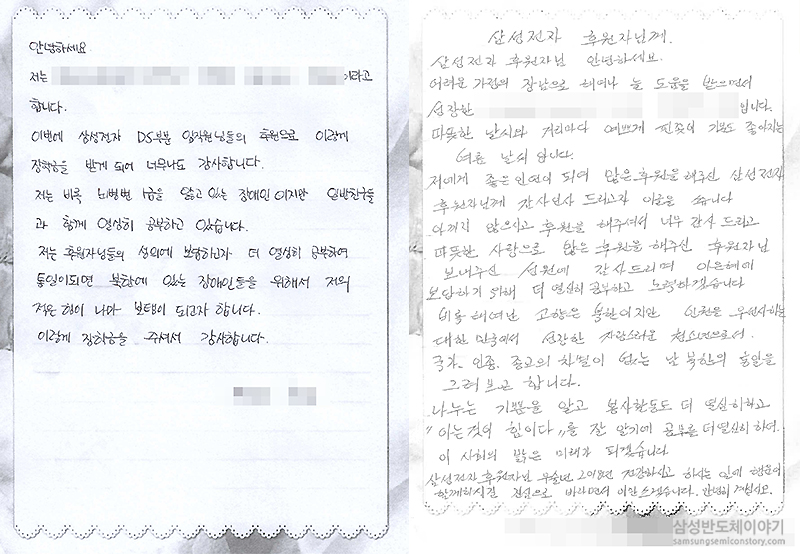 안녕하세요
저는 이라고
합니다.
이번에 삼성전자 DS부분 임직원님들의 후원으로 이렇게
장학금을 받게 되어 너무나도 감사합니다.
저는 비록 뇌병변 1급을 앓고 있는 장애인이지만 일반친구들
과 함께 열심히 공부하고 있습니다.
저는 후원자님들의 성의에 보답하고자 더 열심히 공부하여
통일이되면 북한에 있는 장애인들을 위해서 저의
적은 힘이 나마 보탬이 되고자 합니다.
이렇게 장학금을 주셔서 감사합니다.
삼성전자 후원자님께.
삼성전자 후원자님 안녕하세요.
어려운 가정의 장남으로 태어나 늘 도움을 받으면서
성장한 입니다.
따뜻한 날씨와 거리마다 예쁘게 핀꽃이 기분도 좋아지는
여름 날씨 입니다.
저에게 좋은 인연이 되여 많은 후원을 해주신 삼성전자
후원자님께 감사인사 드리고자 이글을 씁니다
아끼지 않으시고 후원을 해주셔서 너무 감사 드리고
따뜻한 사랑으로 많은 후원을 해주신 후원자님
보내주신 성원에 감사드리며 이은혜에
보답하기 위해 더 열심히 공부하고 노력하겠습니다
비록 태여난 고향은 북한이지만 인권을 우선시하는
대한민국에서 성장한 자랑스러운 청소년으로서.
국가, 인종, 종교의 차별이 없는 남북한의 통일을
그려보고 합니다.
나누는 기쁨을 알고 봉사활동도 더 열심히하고
"아는것이 힘이다"를 잘 알기에 공부를 더열심히 하여.
이 사회의 밝은 미래가 되겠습니다
삼성전자 후원자님 무술년 2018년 건강하시고 하시는 일에 행운이
함께하시길 진심으로 바라면서 이만 쓰겠습니다. 안녕히 계십시오.
삼성반도체이야기
samsungsemiconstory.com